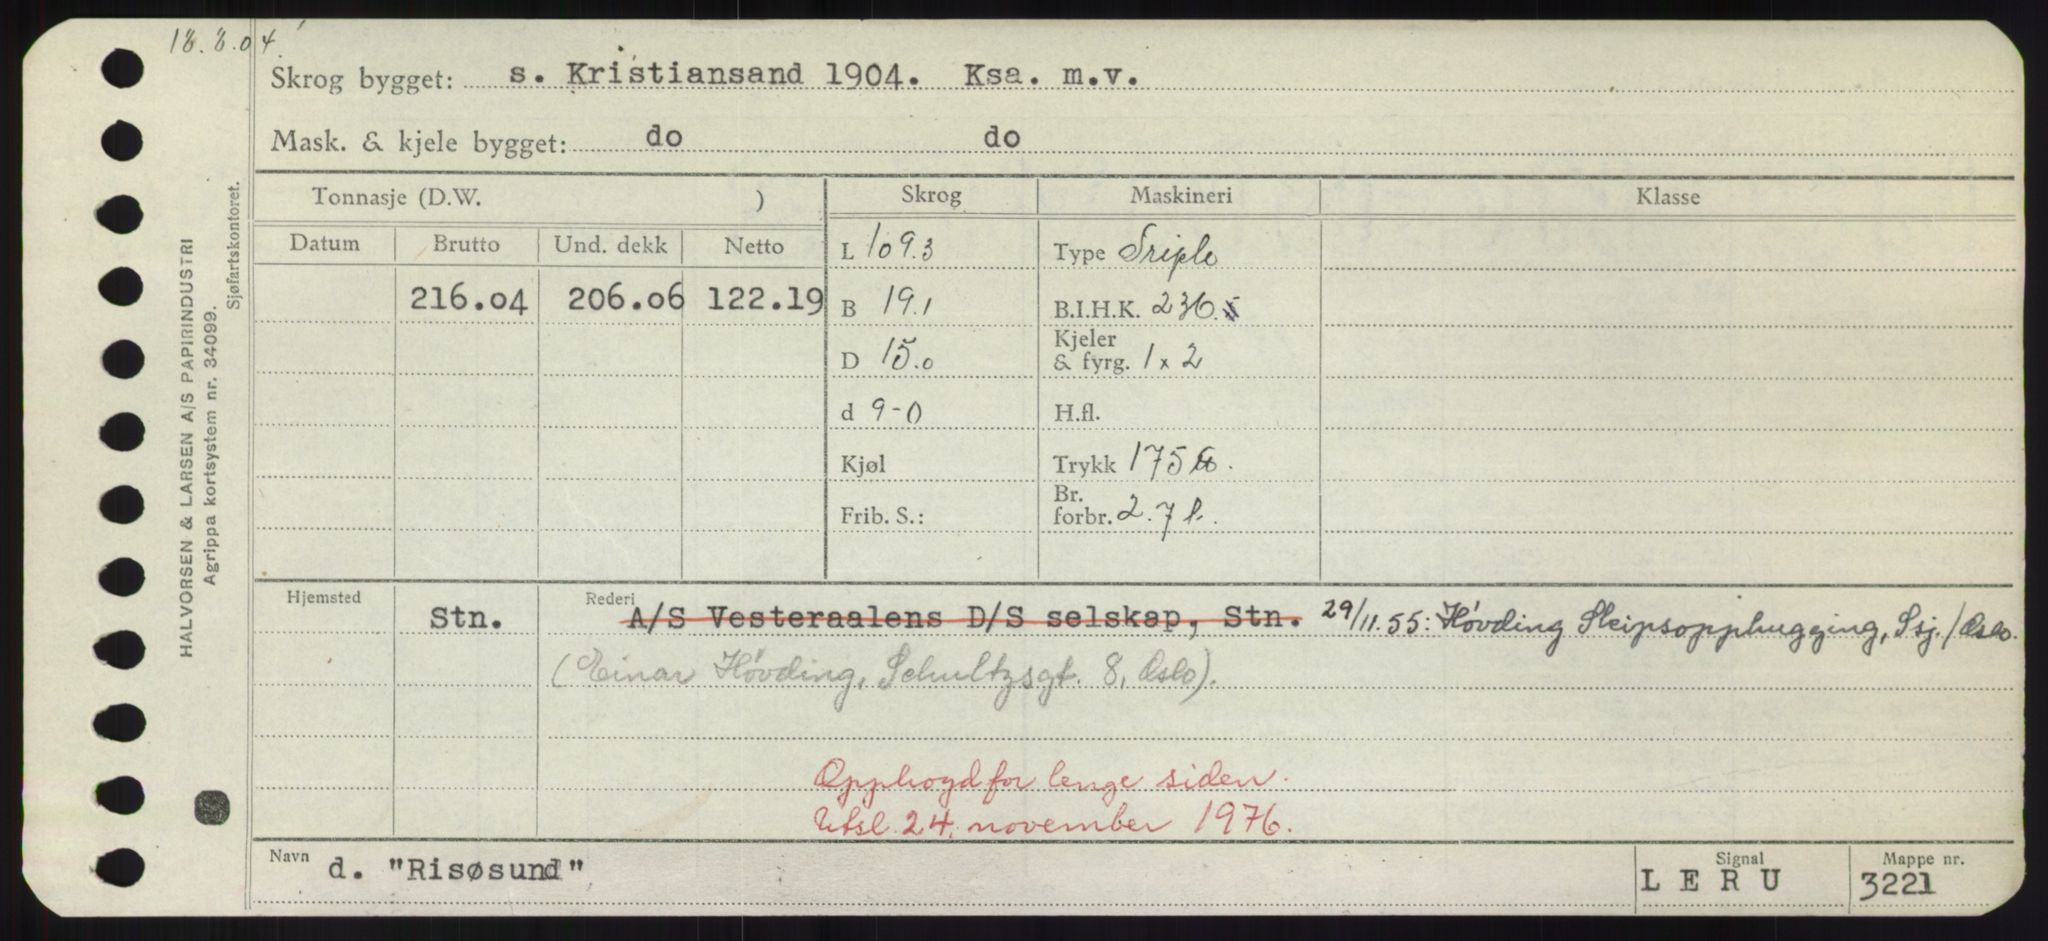 18.8.04.
Skrog bygget: s. Kristiansand 1904. Ksa. m.v.
Mask. & kjele bygget: do do
Tonnasje (D.W. ) Skrog Maskineri Klasse
Datum Brutto Und. dekk Netto
L 109.3 Type Triple
216.04 206.06 122.19 B 19.1 B.I.H.K. 236.
D 15.0 Kjeler & fyrg. 1 x 2
d 9-0 H.fl.
Kjøl Trykk 175 lb.
Frib. S.: Br. forbr. 2.7 t.
Hjemsted Stn. Rederi A/S Vesteraalens D/S selskap, Stn. 29/11.55: Høvding Skipsopphugging, Ssj./Oslo.
(Einar Høvding, Schultzsgt. 8, Oslo).
Opphogd for lenge siden.
Utsl. 24. november 1976.
Navn d. "Risøsund" Signal L E R U Mappe nr. 3221
HALVORSEN & LARSEN A/S PAPIRINDUSTRI
Agrippa kortsystem nr. 34099.
Sjøfartskontoret.